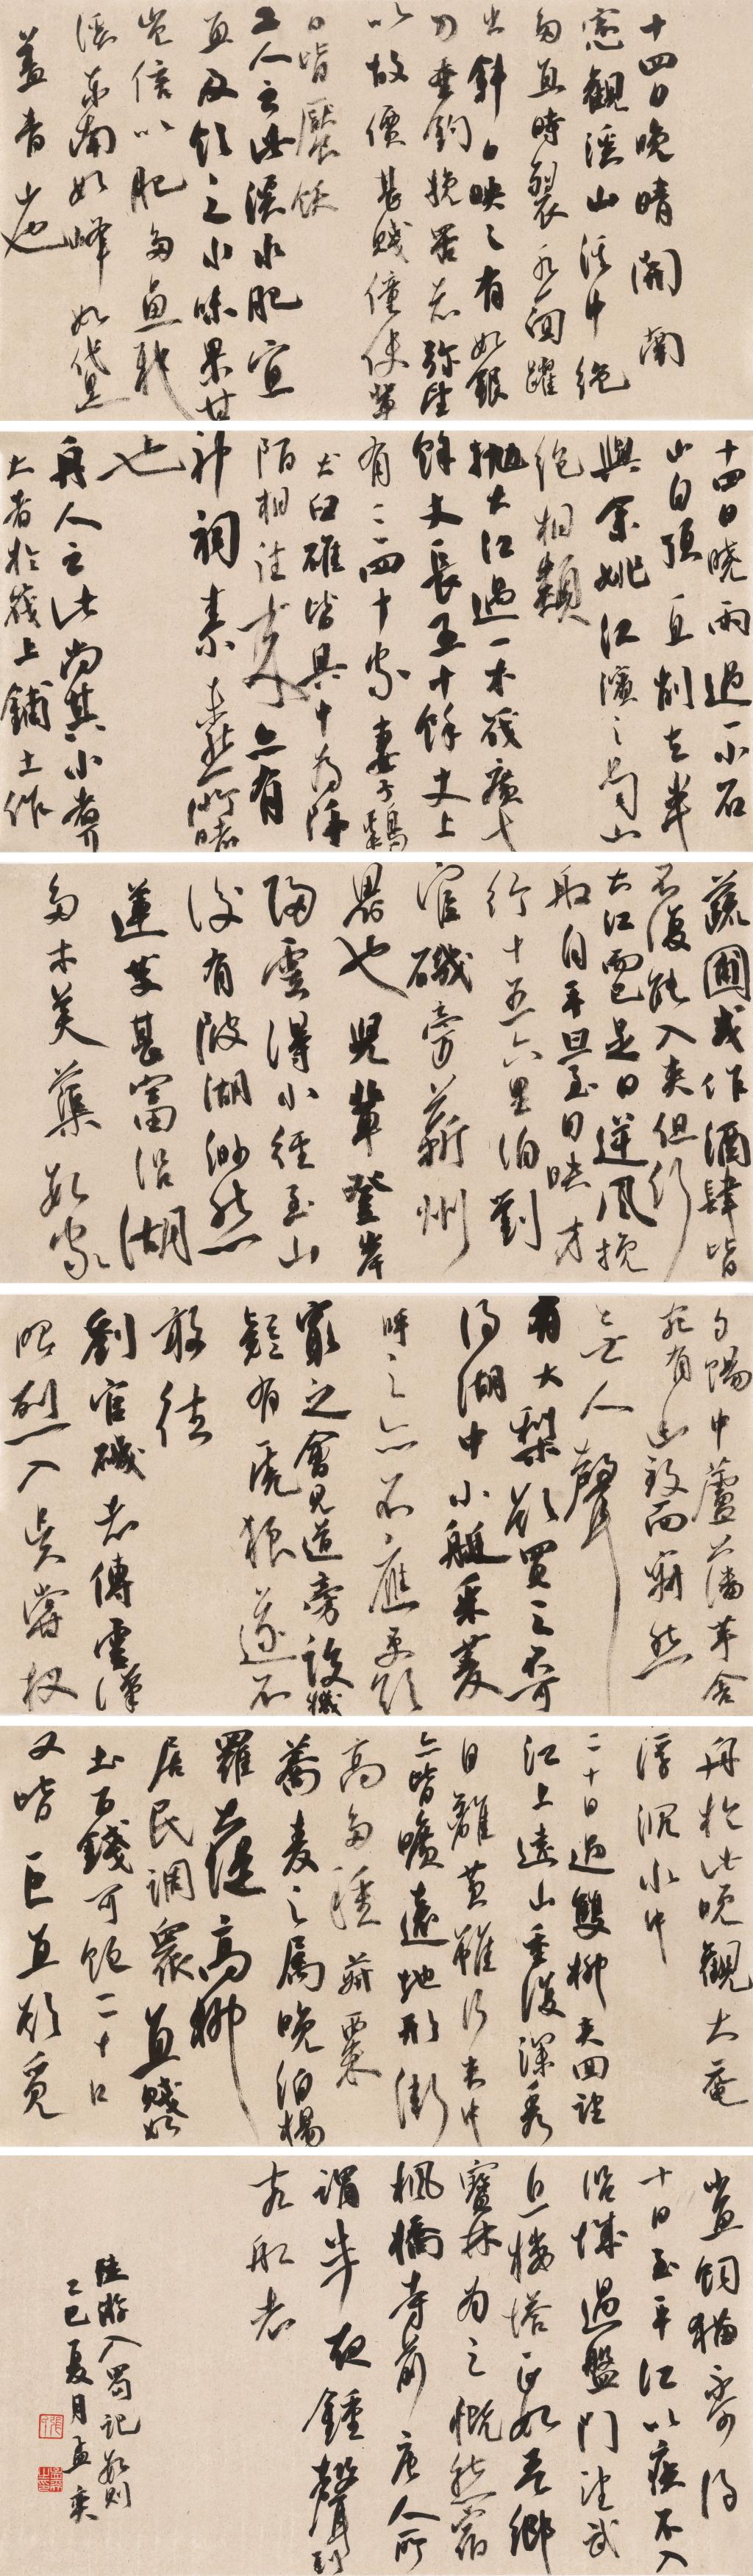 十四日晚晴開南
窓觀溪山溪中絶
多魚時裂水面躍
出斜日映之有如銀
刀垂釣挽罟者彌望
以故價甚賤僮使輩
日皆饜飫
土人云此溪水肥宜
魚及飲之水味果甘
豈信以肥多魚耶
溪東南如峰如黛
蓋青山也
十四日曉雨過一小石
山自頂直削去半
與余姚江濱之蜀山
絶相類
抛大江過一木筏廣十
餘丈長五十餘丈上
有三四十家妻子雞
犬臼碓皆具中為阡
陌相往來亦有
神祠素所未睹
也
舟人云此尚其小者耳
大者於筏上鋪土作
蔬圃或作酒肆皆
不復能入夾但行
大江而已是日逆風挽
船自平旦至日昳才
行十五六里泊劉
官磯旁蘄州
界也兒輩登岸
歸云得小徑至山
後有陂湖渺然
蓮芰甚富沿湖
多木芙蕖數家
夕陽中蘆藩茅舍
宛有幽致而寂然
無人聲
有大梨欲買之不可
得湖中小艇采菱
呼之亦不應更欲
窮之會見道旁設機
疑有虎狼遂不
敢往
劉官磯者傳云漢
昭烈入吳嘗杈
舟於此晚觀大黿
浮沉水中
二十日過雙柳夾回望
江上遠山重復深秀
自離黃雖行夾中
亦皆曠遠地形漸
高多種菽粟
蕎麥之屬晚泊楊
羅洑大堤高柳
居民稠眾魚賤如
土百錢可飽二十口
又皆巨魚欲覓
小魚飼猫不可得
十日至平江以疾不入
沿城過盤門望武
丘樓塔正如吾鄉
寶林為之慨然宿
楓橋寺前唐人所
謂半夜鍾聲到
客船者
陸游入蜀記數則
乙巳夏月孟奕